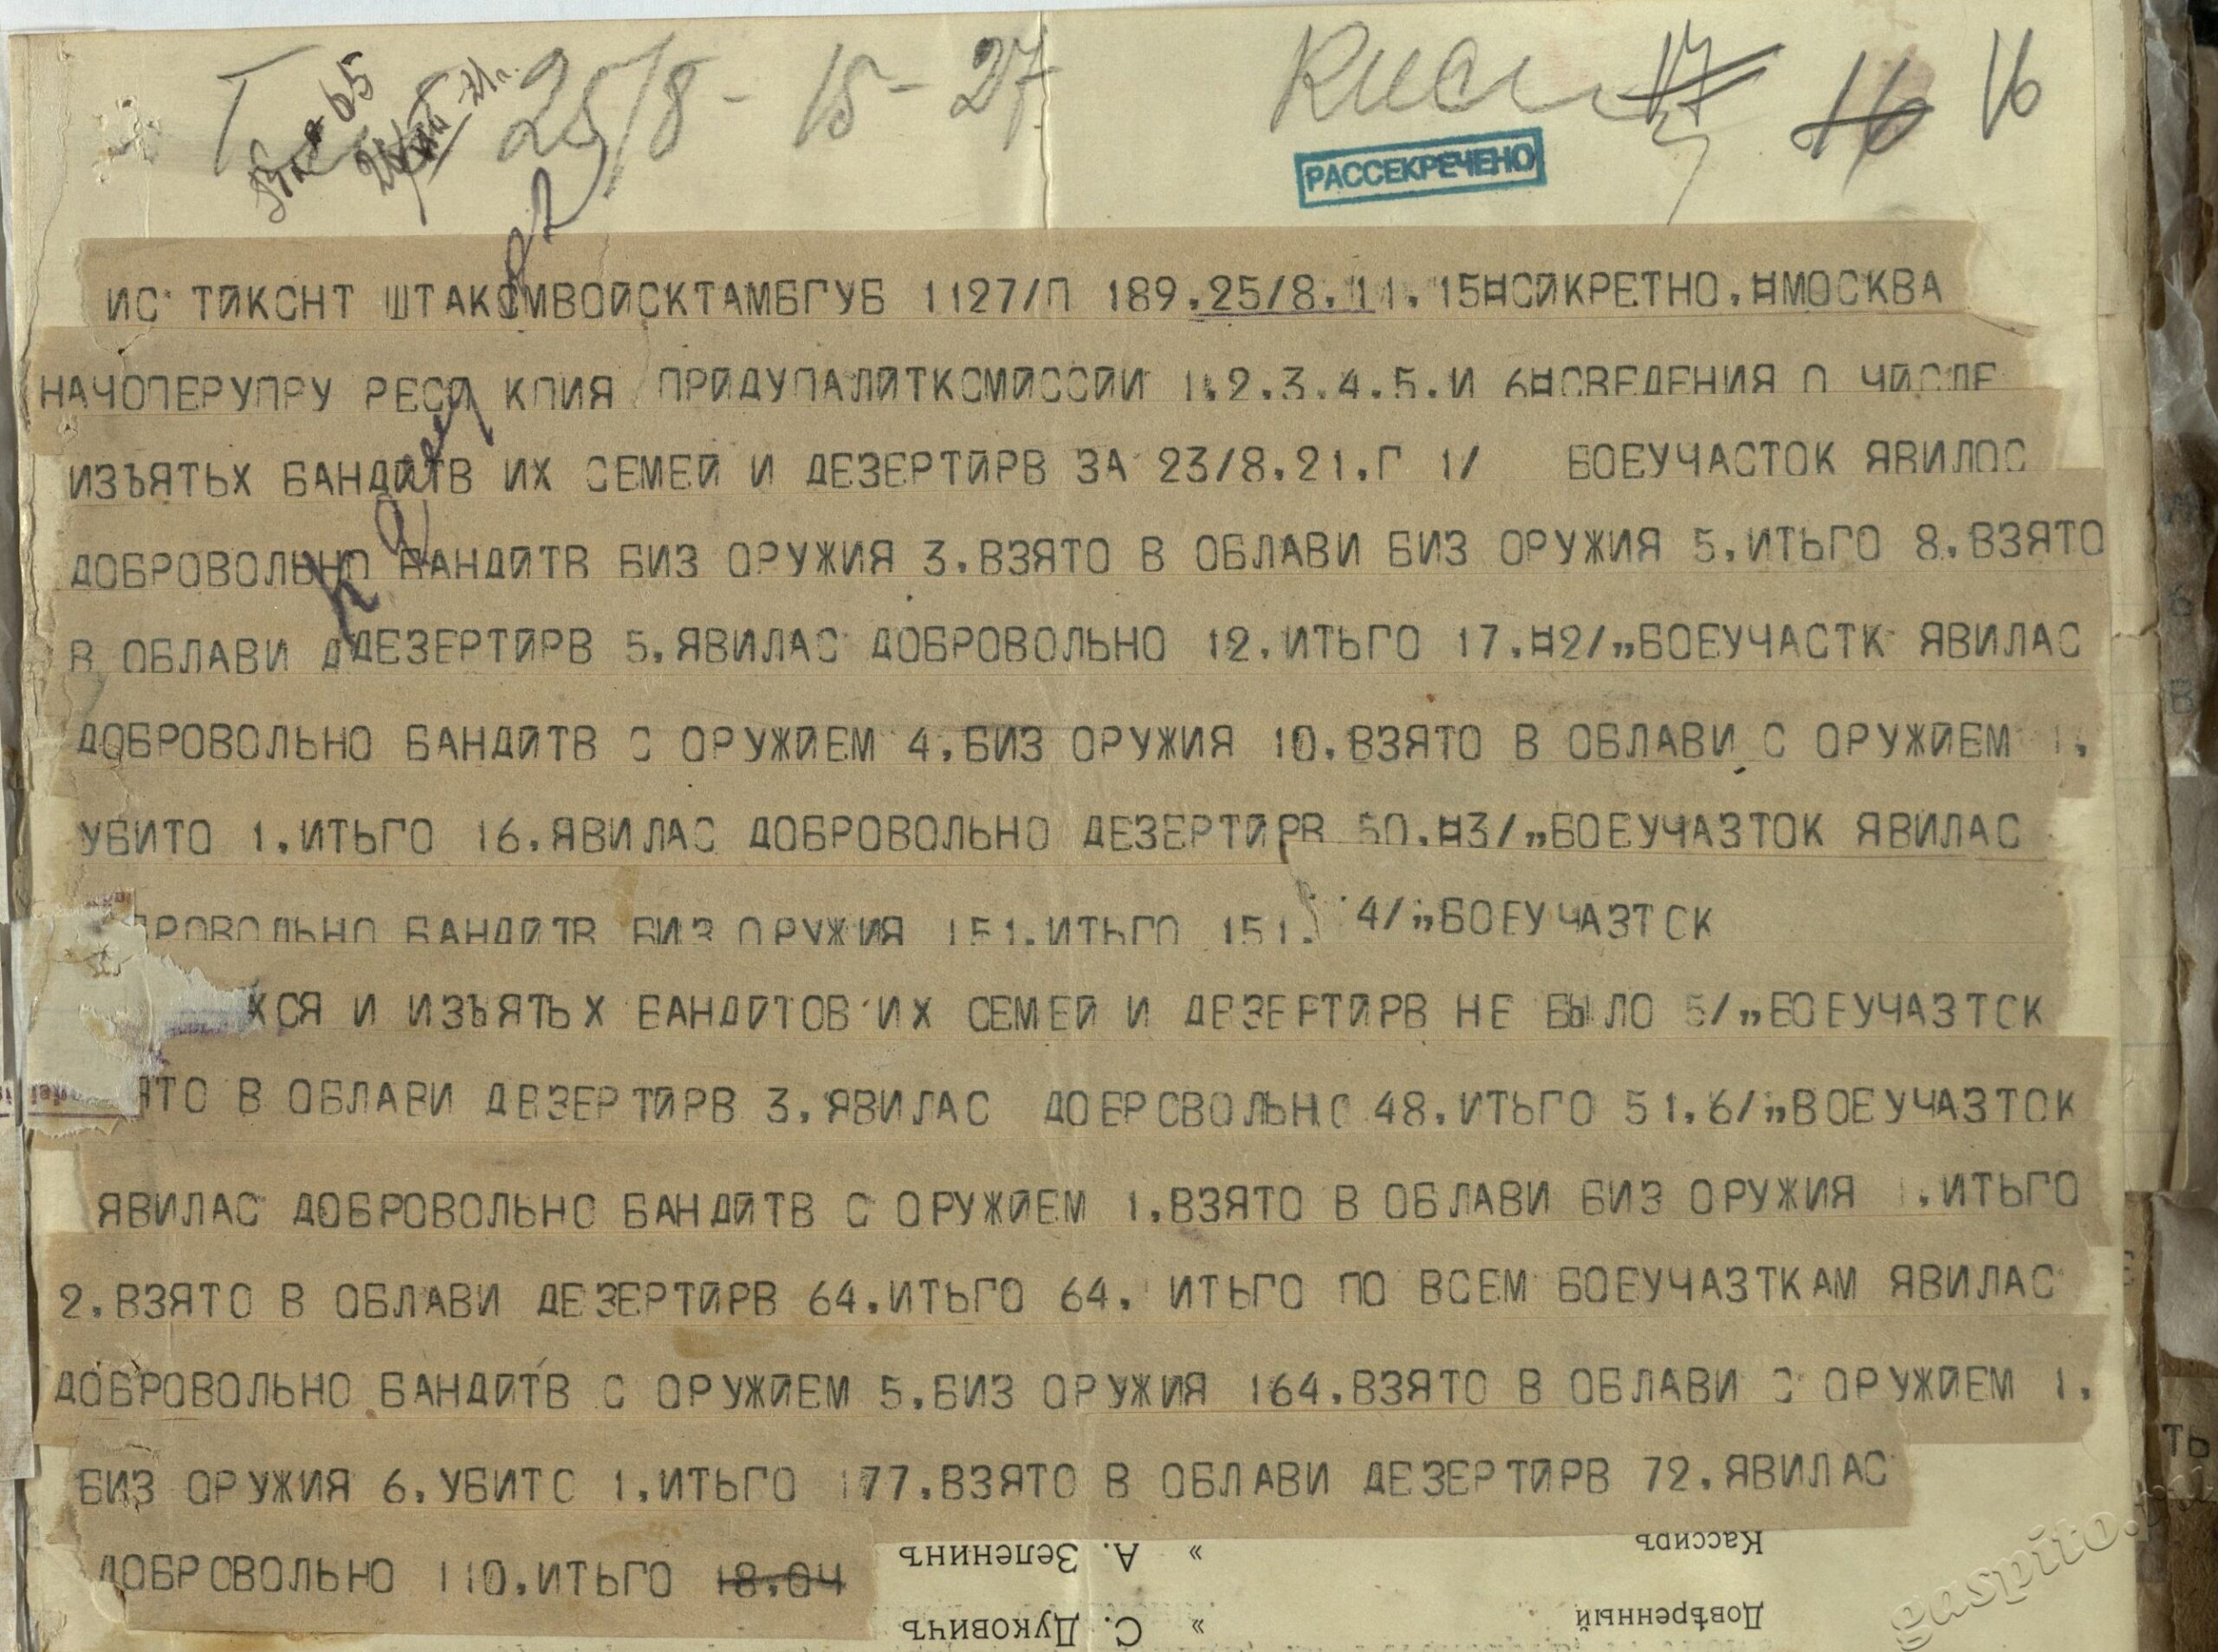 25/8 - 15 - 27
17 16 16
РАССЕКРЕЧЕНО
ИС ТЙКСНТ ШТАКОМВОЙСКТАМБГУБ 1127/П 189.25/8.11.15¤СЙКРЕТНО.¤МОСКВА
НАЧОПЕРУПРУ РЕСЙ КПИЯ ПРЙДУПАЛЙТКСМЙССЙИ 1.2.3.4.5.И 6¤СВЕДЕНИЯ О ЧЙСЛЕ
ИЗЪЯТЬХ БАНДЙТВ ИХ СЕМЕЙ И ДЕЗЕРТЙРВ ЗА 23/8.21.Г 1/ БОЕУЧАСТОК ЯВИЛОС
ДОБРОВОЛЬНО БАНДЙТВ БИЗ ОРУЖИЯ 3.ВЗЯТО В ОБЛАВИ БИЗ ОРУЖИЯ 5.ИТЬГО 8.ВЗЯТО
В ОБЛАВИ ДДЕЗЕРТЙРВ 5.ЯВИЛАС ДОБРОВОЛЬНО 12.ИТЬГО 17.¤2/„БОЕУЧАСТК ЯВИЛАС
ДОБРОВОЛЬНО БАНДЙТВ С ОРУЖЙЕМ 4.БИЗ ОРУЖИЯ 10.ВЗЯТО В ОБЛАВИ С ОРУЖЙЕМ 1.
УБИТО 1.ИТЬГО 16.ЯВИЛАС ДОБРОВОЛЬНО ДЕЗЕРТЙРВ 50.¤3/„БОЕУЧАЗТОК ЯВИЛАС
БРОВОЛЬНО БАНДЙТВ БИЗ ОРУЖИЯ 151.ИТЬГО 151. 4/„БОЕУЧАЗТСК
ХСЯ И ИЗЪЯТЬХ БАНДЙТОВ ИХ СЕМЕЙ И ДЕЗЕРТЙРВ НЕ БЫЛО 5/„БОЕУЧАЗТСК
ЯТО В ОБЛАВИ ДВЗЕРТЙРВ 3.ЯВИЛАС ДОБРСВОЛЬНО 48.ИТЬГО 51.6/„ВОЕУЧАЗТОК
ЯВИЛАС ДОБРОВОЛЬНО БАНДЙТВ С ОРУЖЙЕМ 1.ВЗЯТО В ОБЛАВИ БИЗ ОРУЖИЯ 1.ИТЬГО
2.ВЗЯТО В ОБЛАВИ ДЕЗЕРТЙРВ 64.ИТЬГО 64. ИТЬГО ПО ВСЕМ БОЕУЧАЗТКАМ ЯВИЛАС
ДОБРОВОЛЬНО БАНДЙТВ С ОРУЖЙЕМ 5.БИЗ ОРУЖИЯ 164.ВЗЯТО В ОБЛАВИ С ОРУЖЙЕМ 1.
БИЗ ОРУЖИЯ 6.УБИТО 1.ИТЬГО 177.ВЗЯТО В ОБЛАВИ ДЕЗЕРТЙРВ 72.ЯВИЛАС
ДОБРОВОЛЬНО 110.ИТЬГО 18.04
Кассиръ » А. Зеленинъ
Довѣренный » С. Дуковичъ
gaspito.